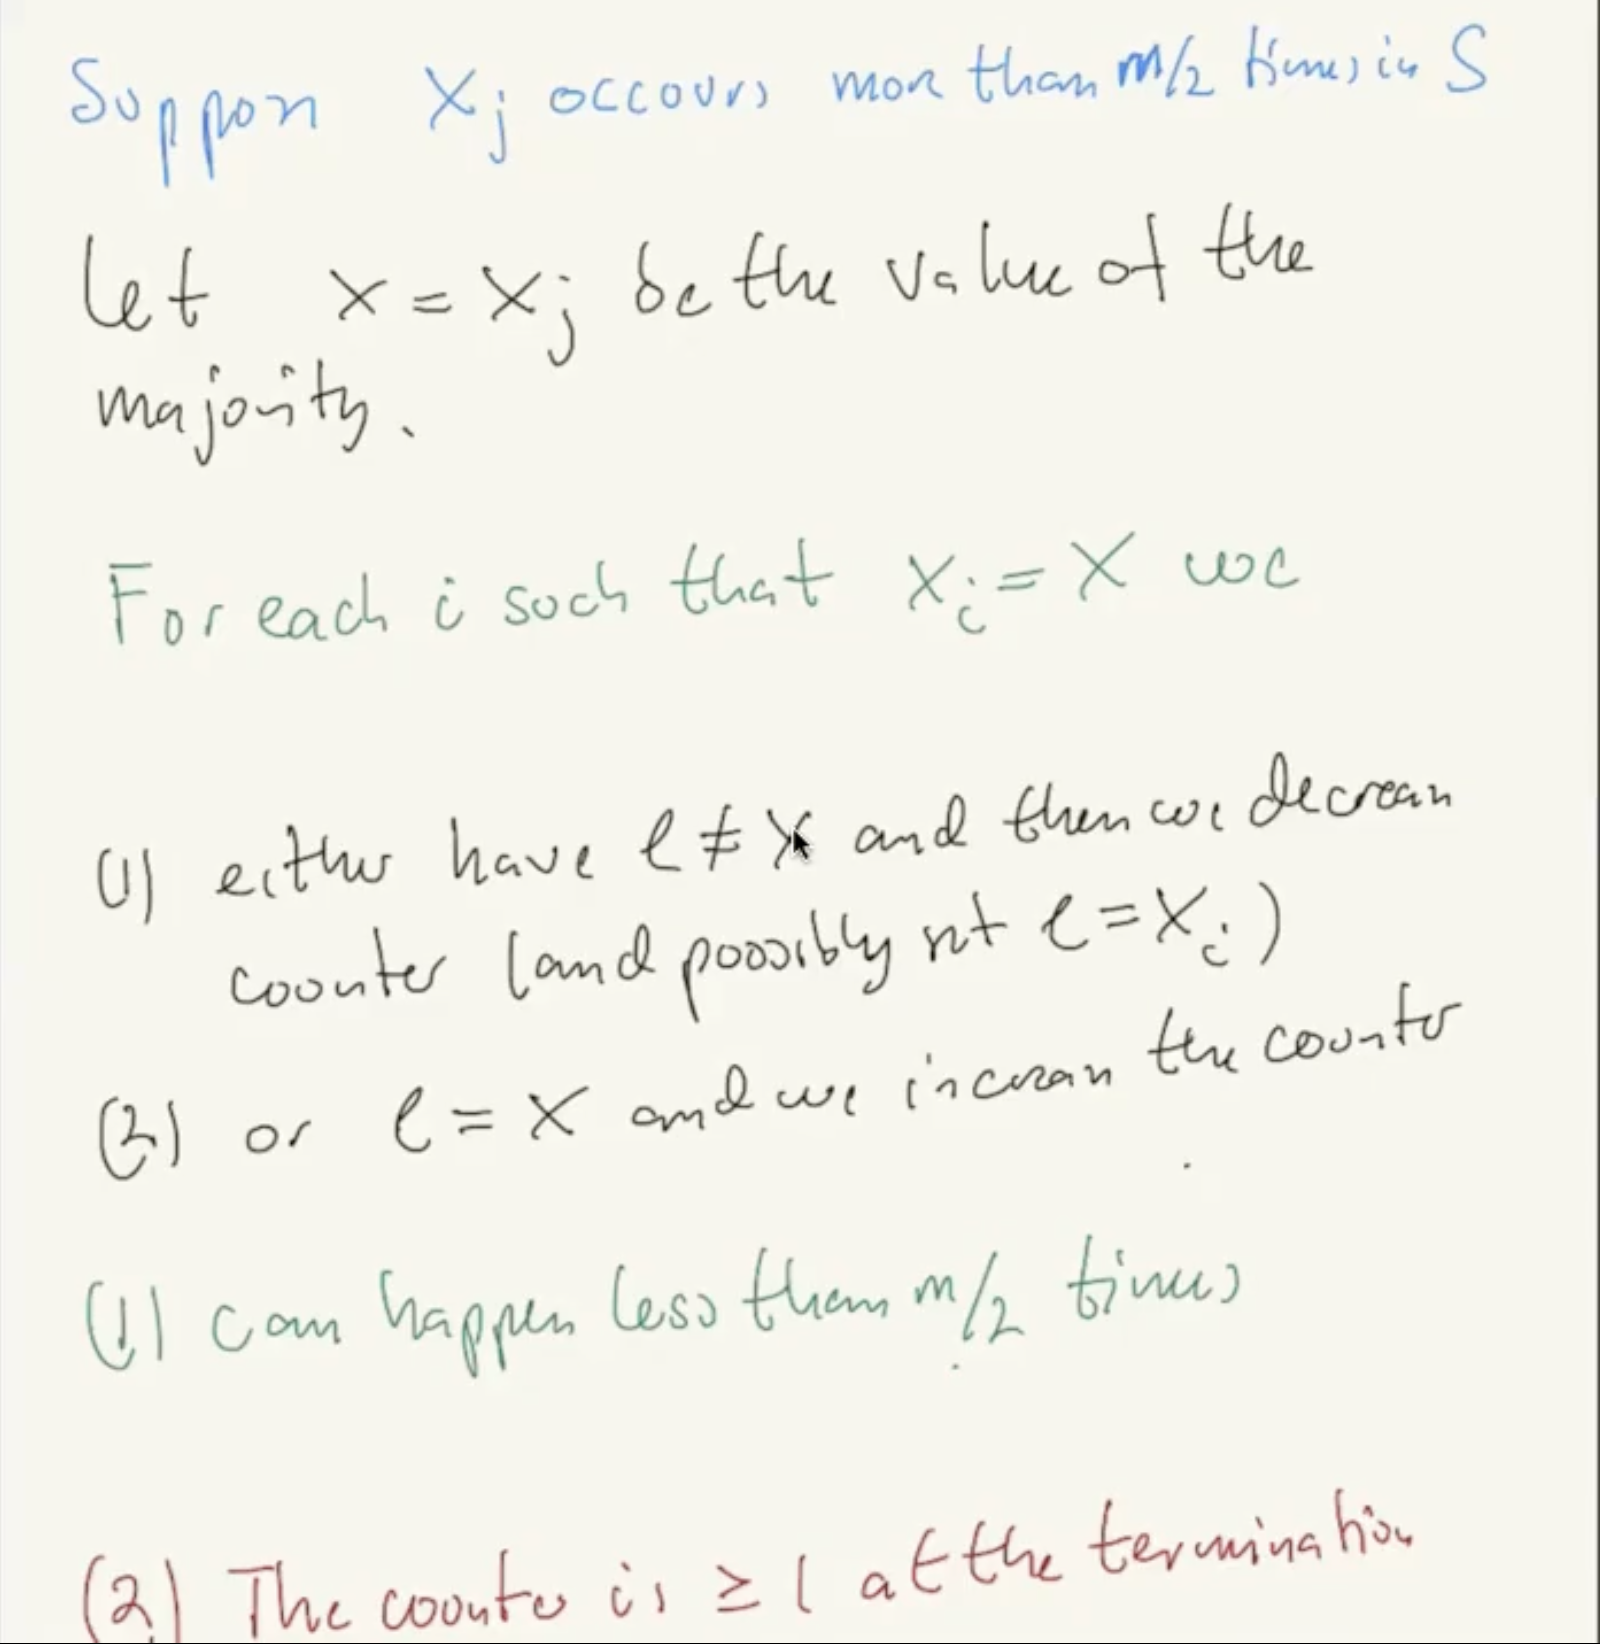 Suppose Xj occours more than m/2 times in S
Let x = xj be the value of the
majority.
For each i such that xi = x we
(1) either have l ≠ x and then we decrease
counter (and possibly set l = xi)
(2) or l = x and we increase the counter
(1) can happen less than m/2 times
(2) The counter is ≥ 1 at the termination